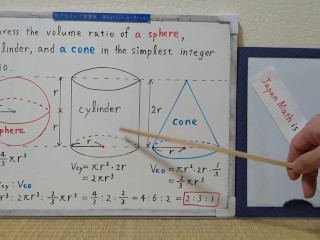 press the volume ratio of a sphere,
linder, and a cone in the simplest integer
io.
r
r
r
sphere
cylinder
r
r
r
2r
cone
r
4/3 πr³
Vcy = πr²·2r
= 2πr³
Vco = πr²·2r·1/3
= 2/3 πr³
Vcy : Vco
r³ : 2πr³ : 2/3 πr³ = 4/3 : 2 : 2/3 = 4 : 6 : 2 = 2 : 3 : 1
Japan Math is